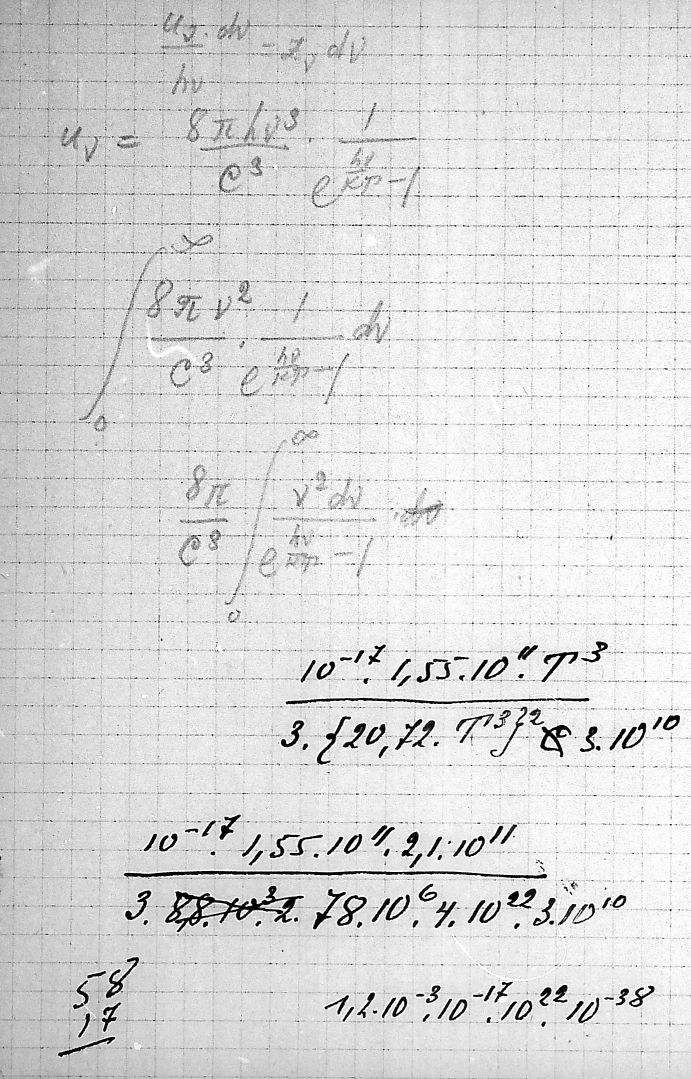 u_ν·dν / hν = z_ν dν
u_ν = 8πhν³ / c³ · 1 / e^(hν/kT) − 1
∫₀^∞ 8πν² / c³ · 1 / e^(hν/kT) − 1 dν
8π / c³ ∫₀^∞ ν²dν / e^(hν/kT) − 1 · dν
10⁻¹⁷·1,55·10¹¹·T³
3·{20,72·T³}² c 3·10¹⁰
10⁻¹⁷·1,55·10¹¹·2,1·10¹¹
3·8,8·10³·2·78·10⁶·4·10²²·3·10¹⁰
58
17
1,2·10⁻³·10⁻¹⁷·10²²·10⁻³⁸